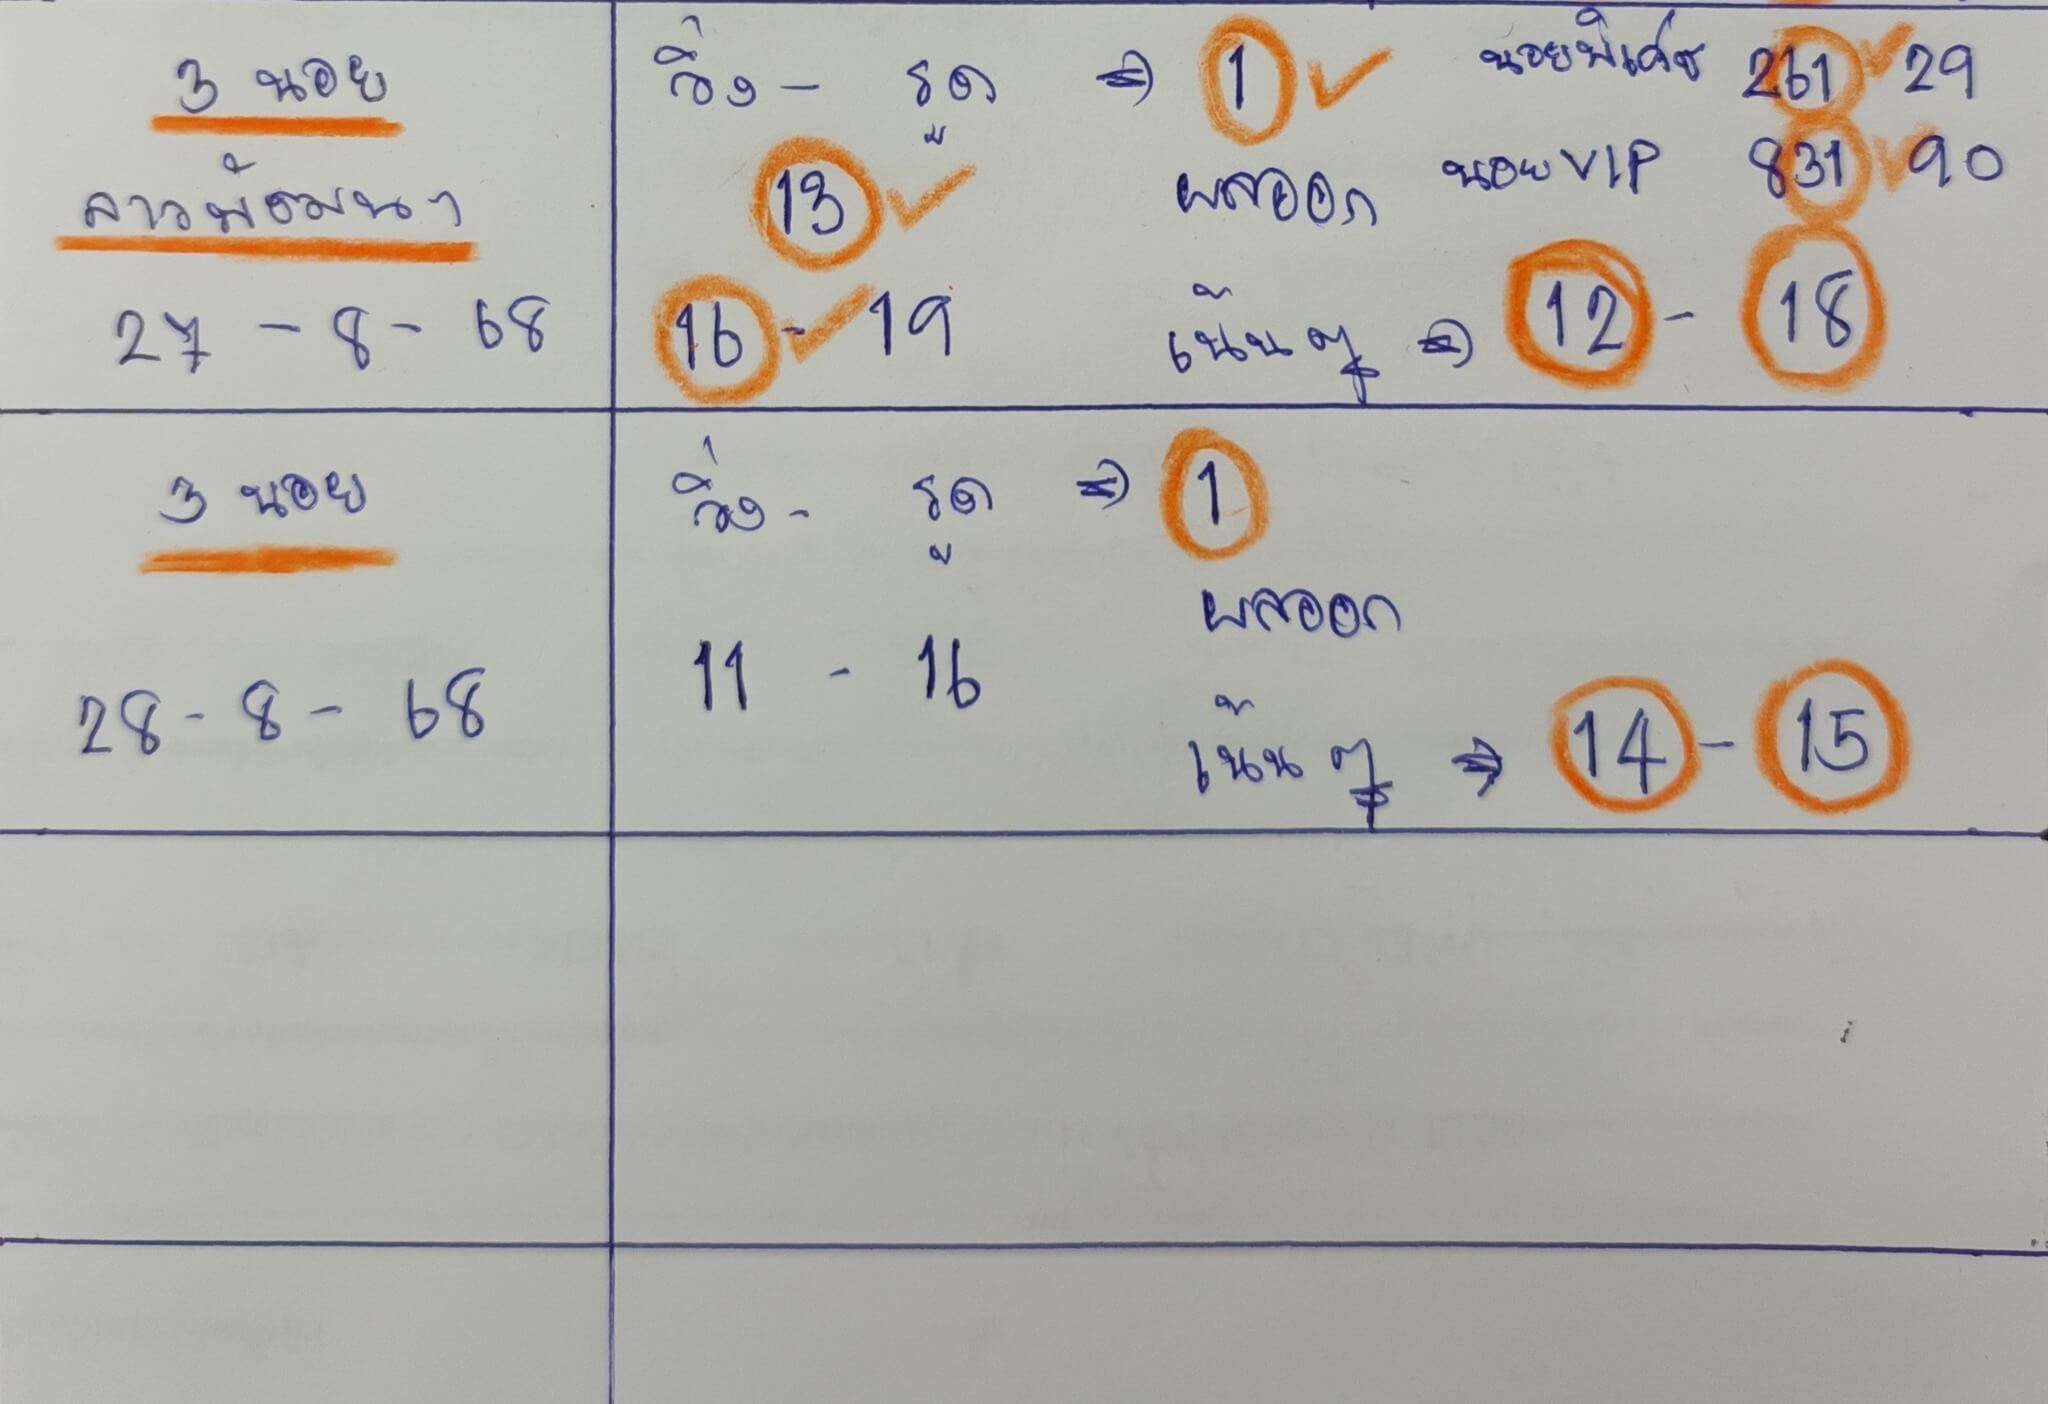 3 นอย
ลาวพัฒนา
27 - 8 - 68
วิ่ง - รูด ⇒ 1 ✓
13 ✓
16 - ✓ 19
นอยพิเศษ 261 ✓ 29
นอย VIP 831 ✓ 90
ผลออก
เน้นๆ ⇒ 12 - 18
3 นอย
28 - 8 - 68
วิ่ง - รูด ⇒ 1
11 - 16
ผลออก
เน้นๆ ⇒ 14 - 15